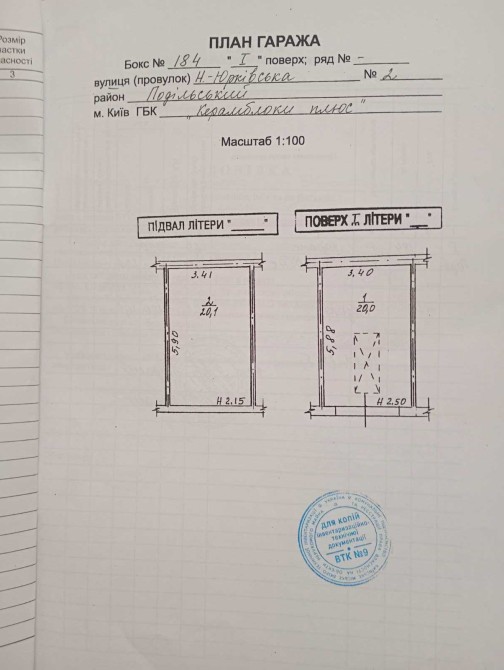 Розмір
частки
власності
3
ПЛАН ГАРАЖА
Бокс № 184 " I " поверх; ряд № –
вулиця (провулок) Н-Юрківська № 2
район Подільський
м. Київ ГБК "Керамблоки плюс"
Масштаб 1:100
ПІДВАЛ ЛІТЕРИ "____" ПОВЕРХ I ЛІТЕРИ "__"
3.41 3,40
2 1
20,1 20,0
5,90 5,88
Н 2.15 Н 2.50
для копій
інвентаризаційно-
технічної
документації
ВТК №9